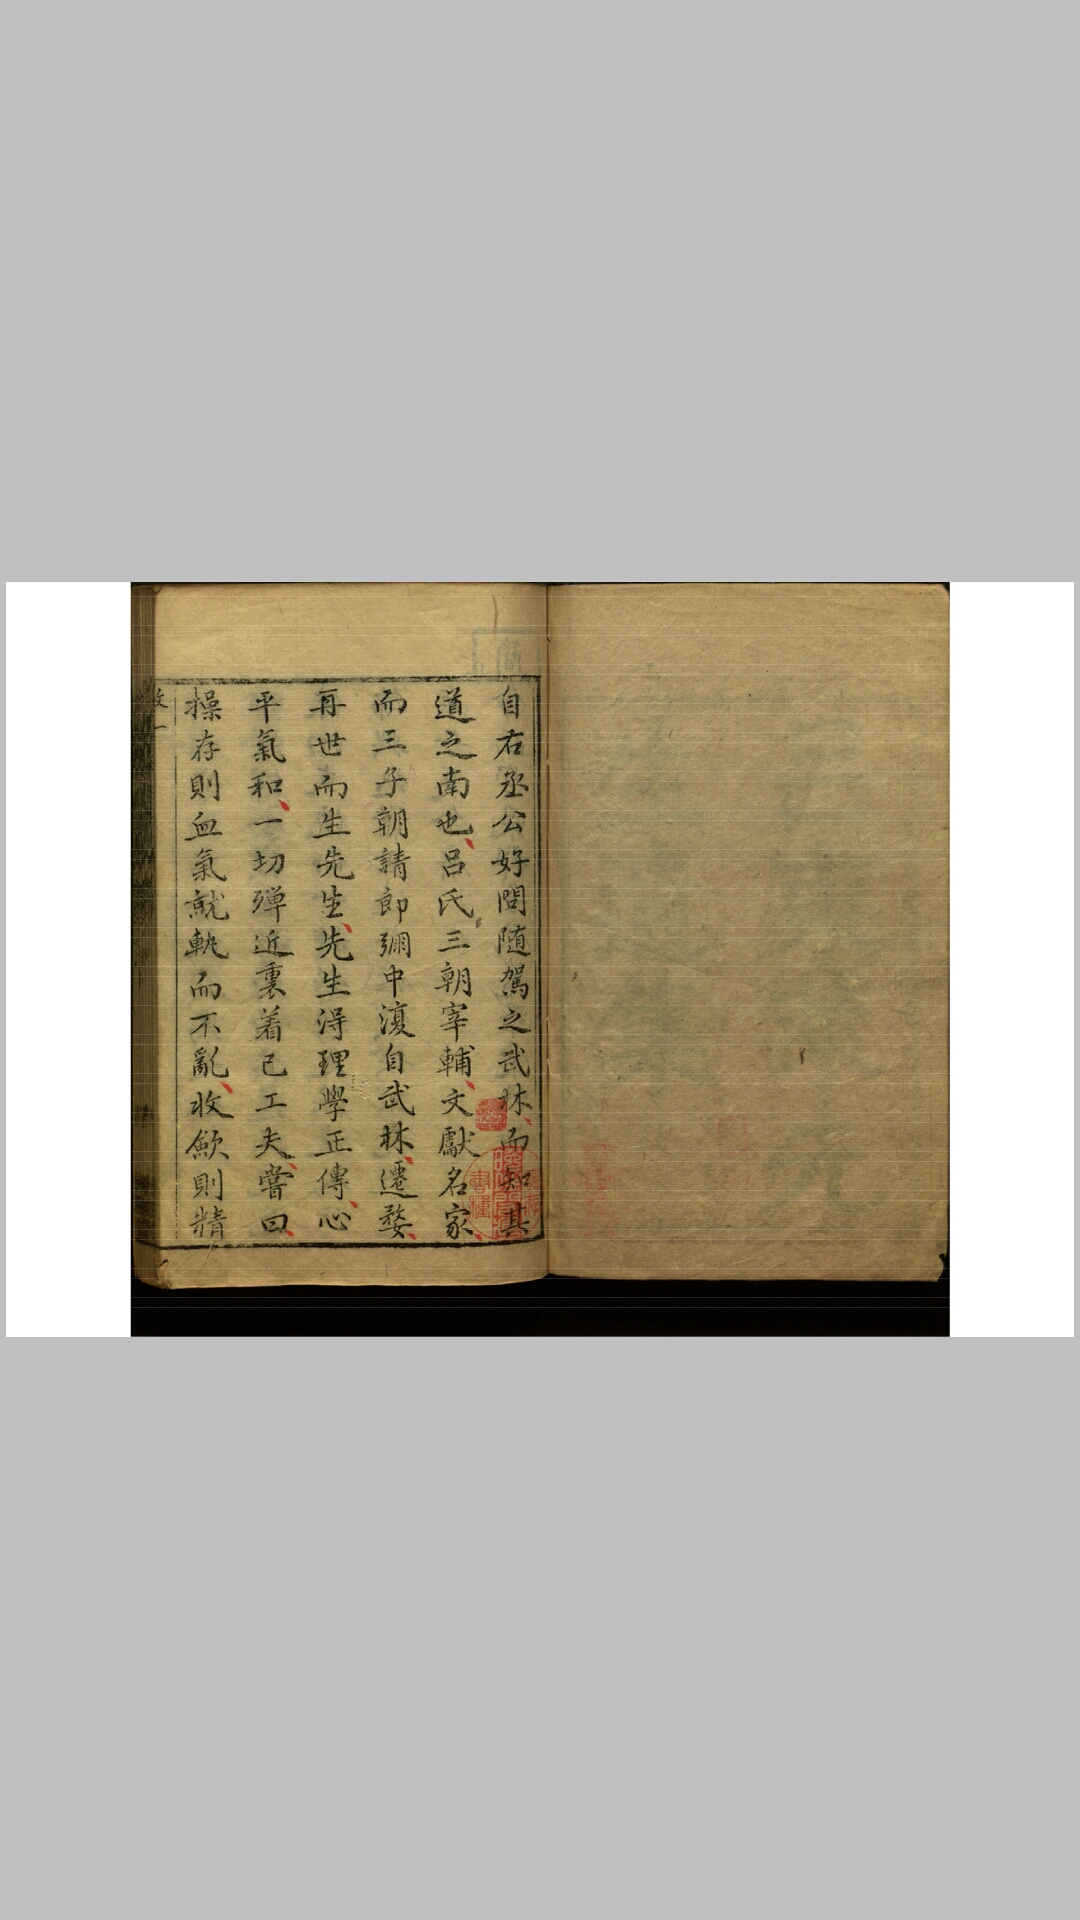 自右丞公好問隨駕之武林而知其
道之南也呂氏三朝宰輔文獻名家
而三子朝請郎弸中復自武林遷婺
再世而生先生先生得理學正傳心
平氣和一切殫近裏着己工夫嘗曰
操存則血氣就軌而不亂收歛則精